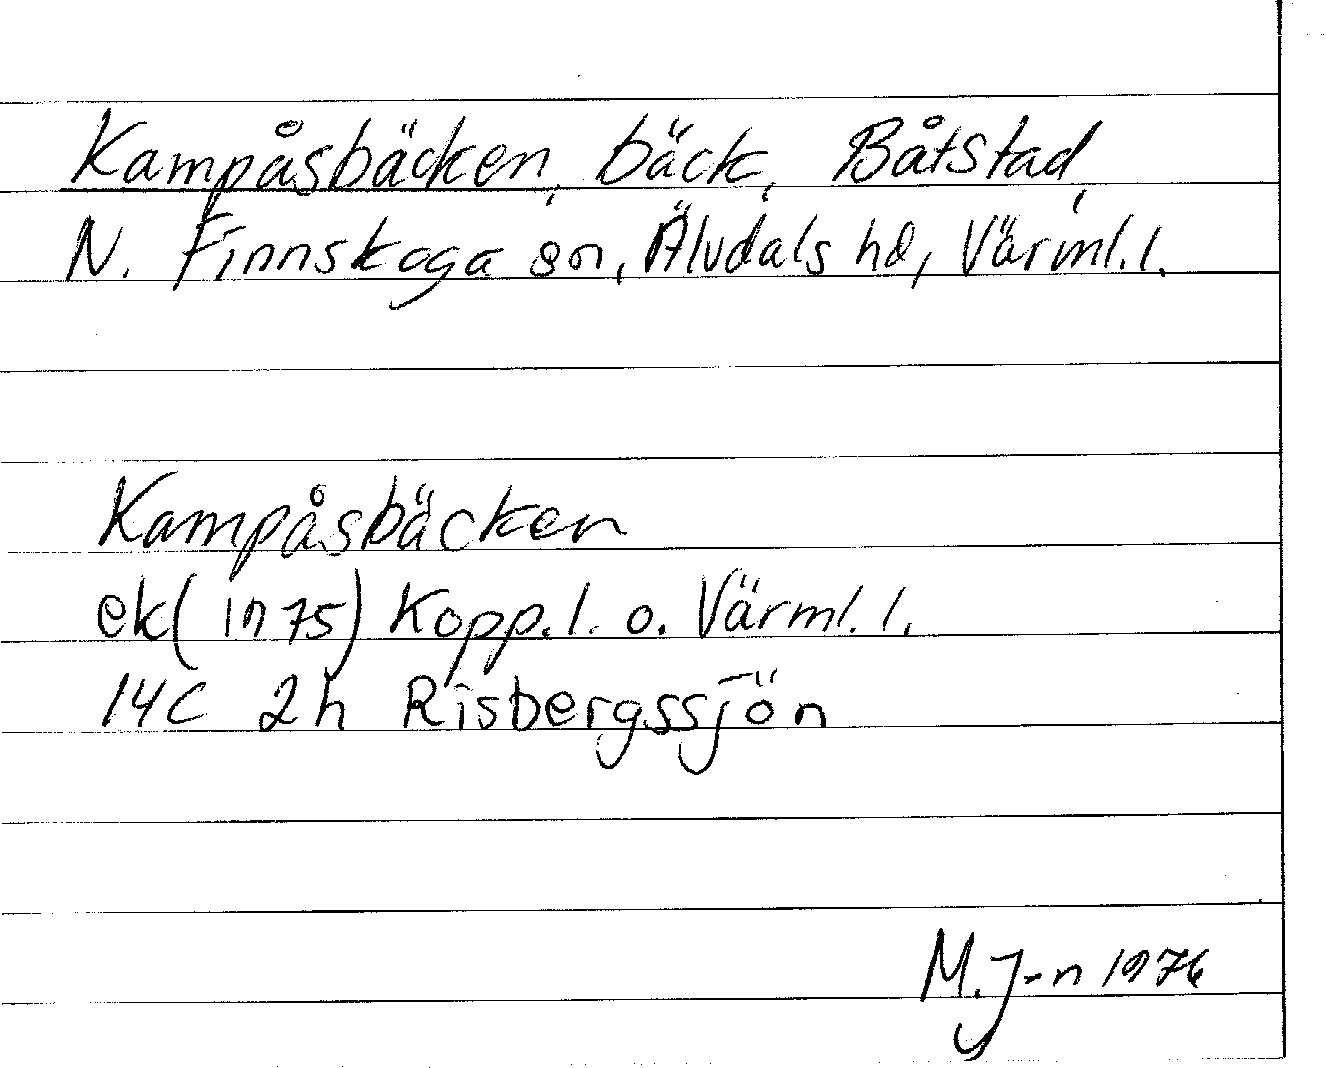 Kampåsbäcken, bäck, Båtstad,
N. Finnskoga sn, Älvdals hd, Värml.l.
Kampåsbäcken
ek (1975) Kopp.l. o. Värml. l.
14C 2h Risbergssjön
M.J-n 1976